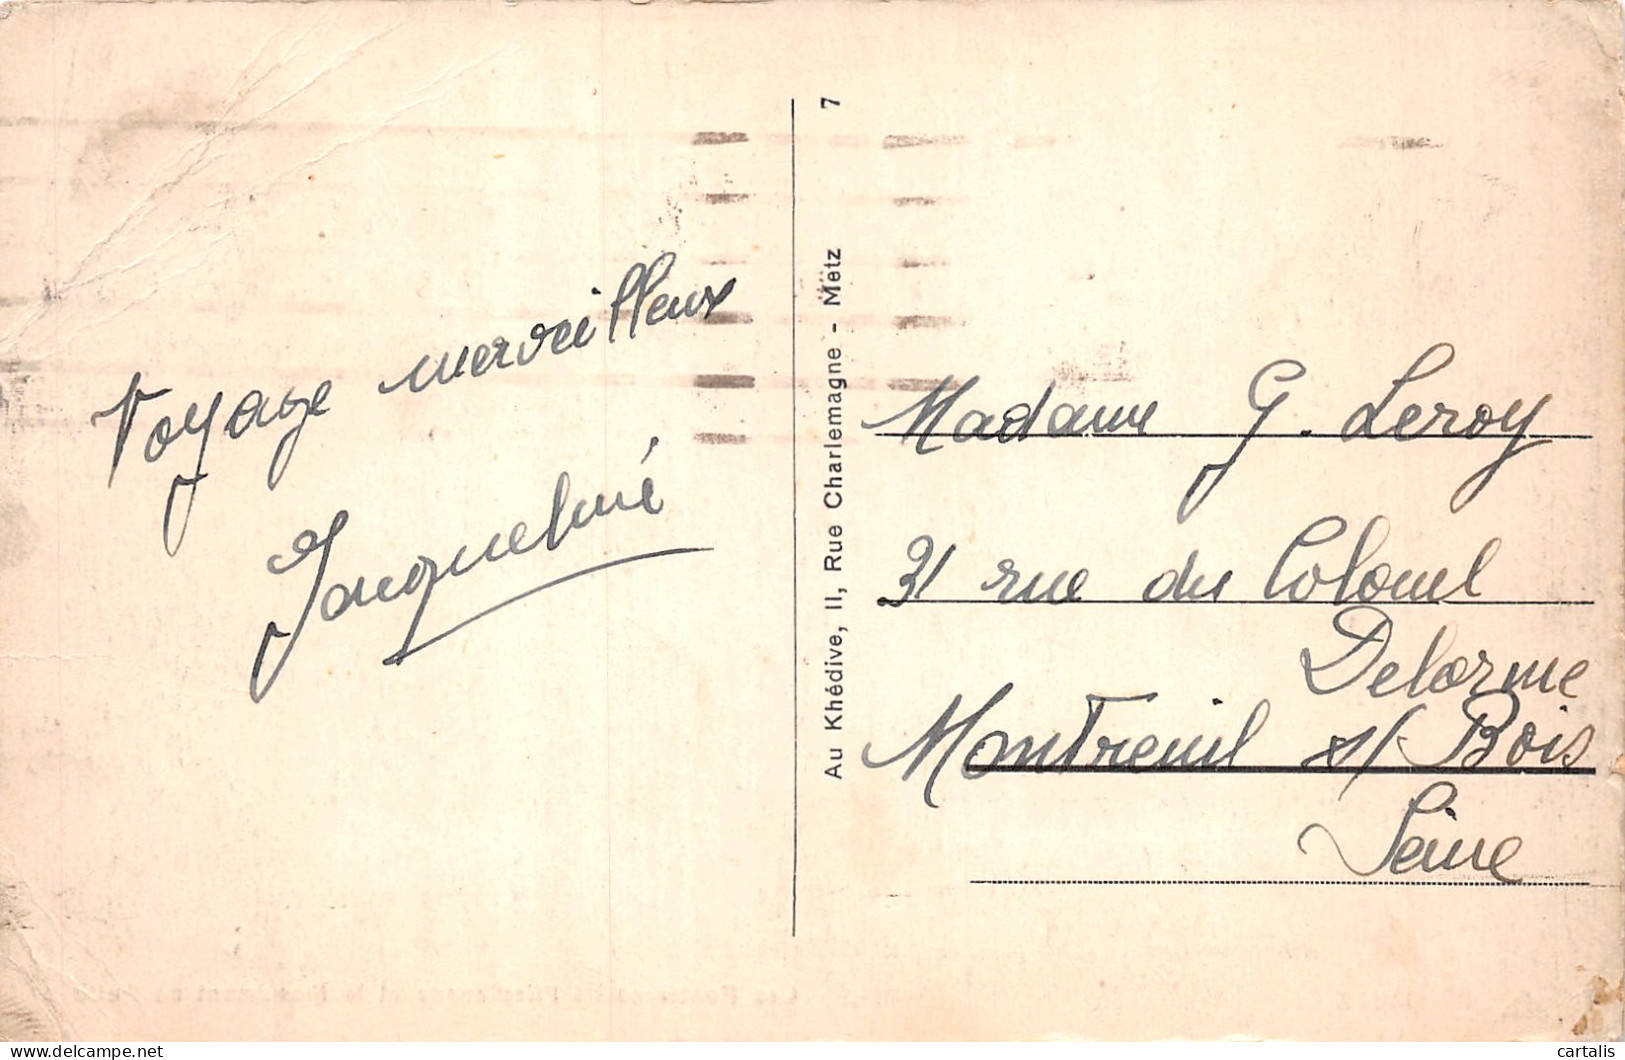 Voyage merveilleux
Jacqueline
Au Khédive, 11, Rue Charlemagne - Metz 7
Madame G. Leroy
31 rue du Colonel
Delorme
Montreuil s/ Bois
Seine
delcampe.net
cartalis